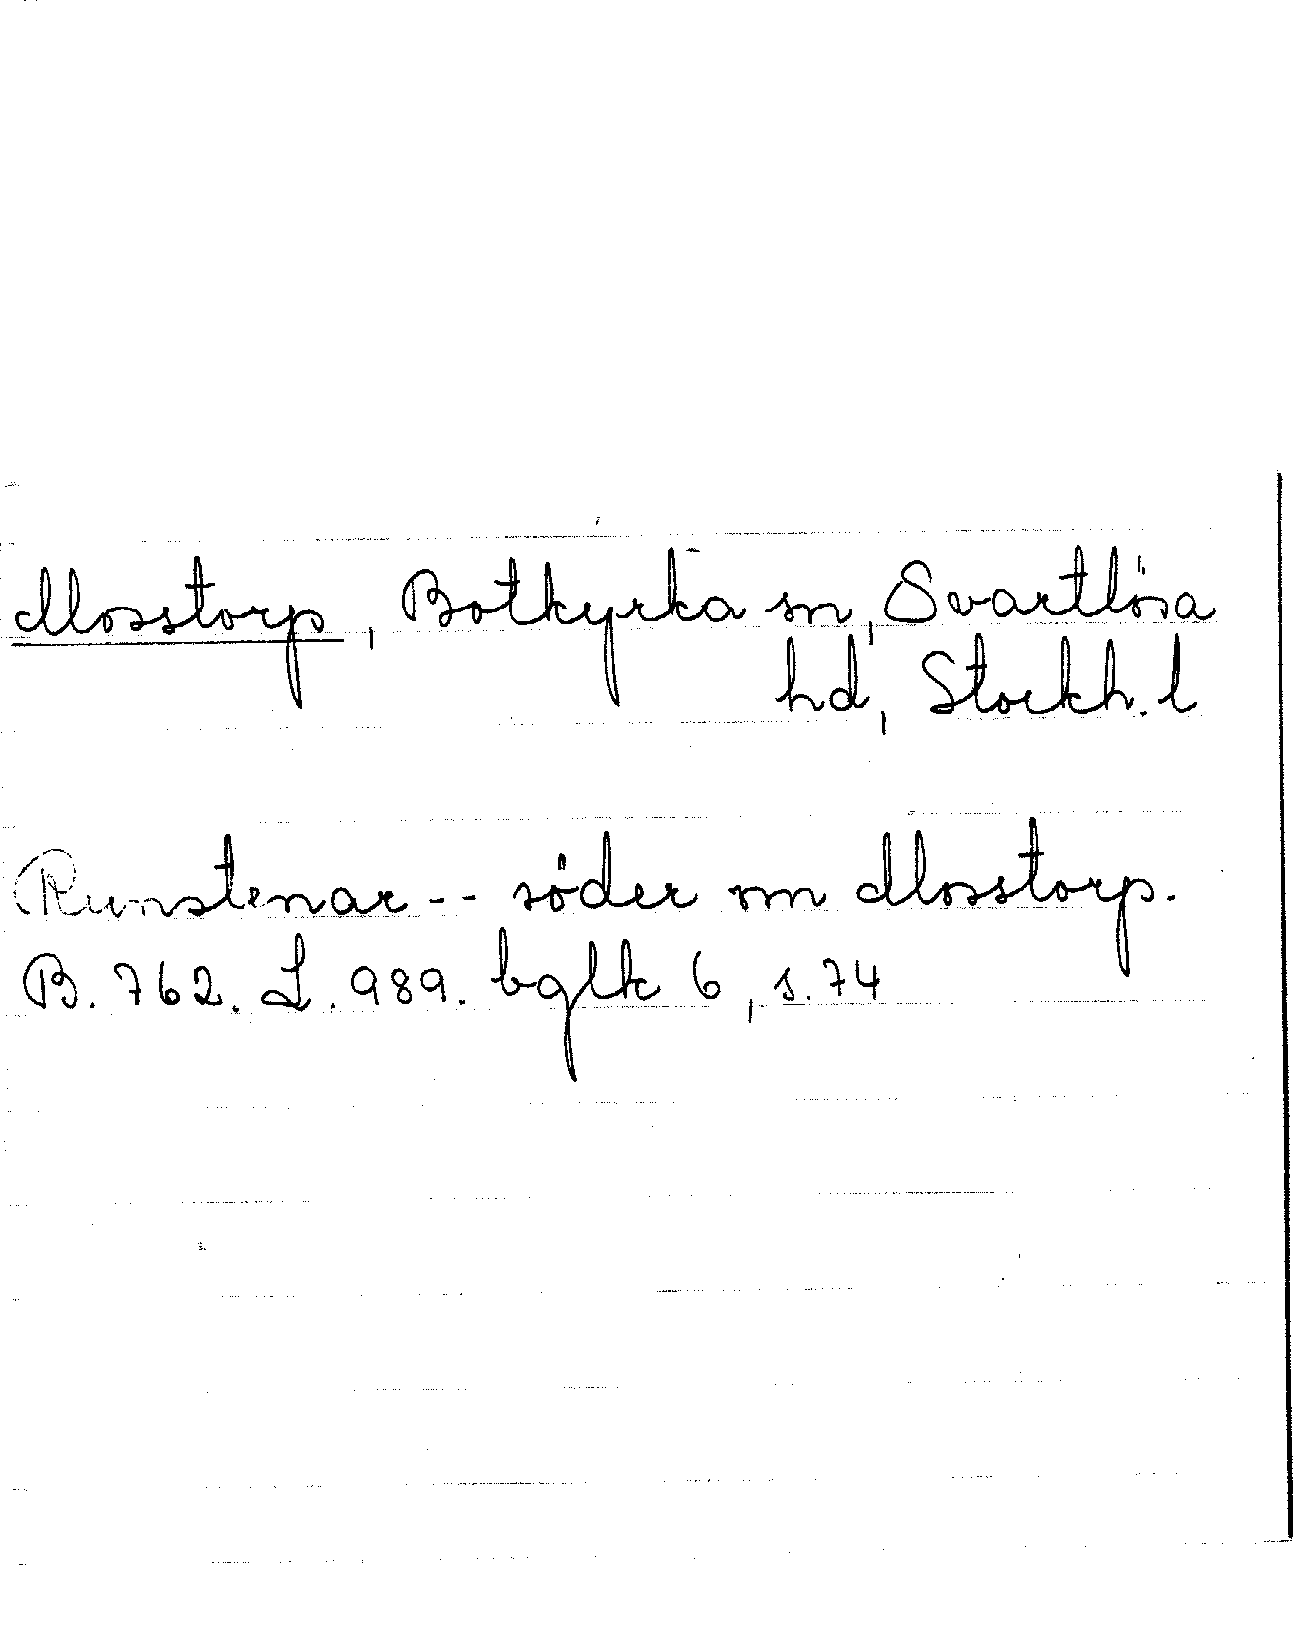 Mosstorp, Botkyrka sn, Svartlösa
hd, Stockh. l
Runstenar -- söder om Mosstorp.
B. 762. L. 989. bglk 6, s. 74